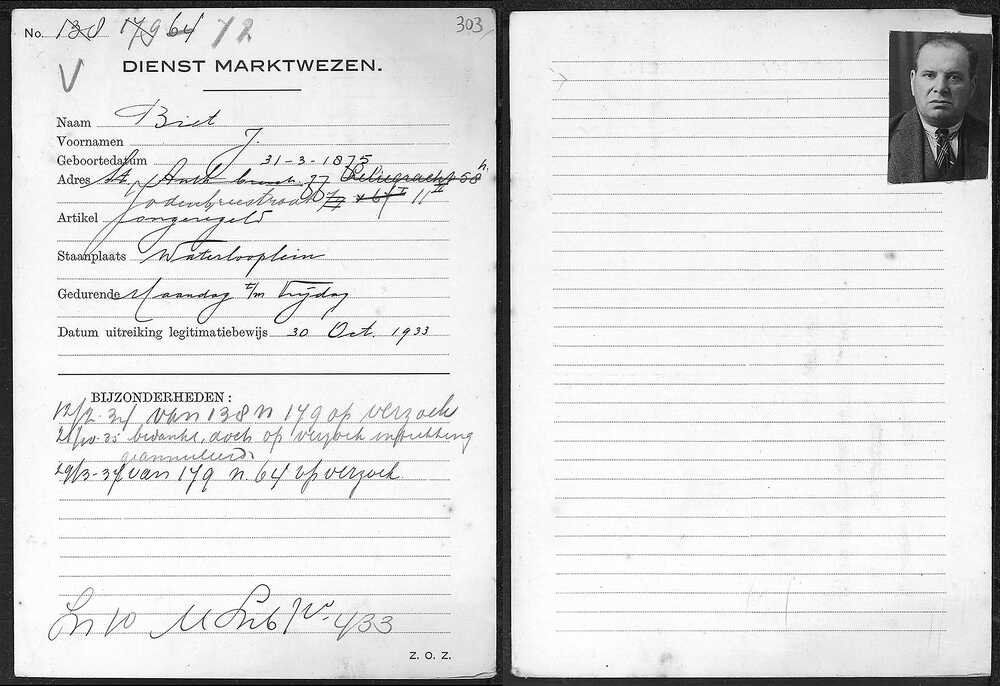 No. 138 179 64 72 303
V
DIENST MARKTWEZEN.
Naam Biet
Voornamen J.
Geboortedatum 31-3-1875
Adres St. Anth. breestr. 77 Peliegracht 58 h.
Jodenbreestraat 11 II
Artikel
Staanplaats Waterlooplein
Gedurende Maandag t/m Vrijdag
Datum uitreiking legitimatiebewijs 30 Oct. 1933
BIJZONDERHEDEN:
12/2-34 van 138 n 179 op verzoek
bedankt, doch op verzoek intrekking
geannuleerd.
29/3-37 van 179 n. 64 op verzoek
433
Z. O. Z.